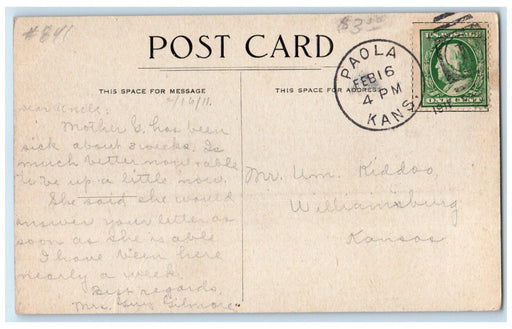 #841
$3.00
POST CARD
THIS SPACE FOR MESSAGE
THIS SPACE FOR ADDRESS
PAOLA
FEB 16
4 PM
KANS.
ONE CENT
2/16/11.
Dear Uncle:
Mother G. has been
sick about 3 weeks. Is
much better now & able
to be up a little now.
She said she would
answer your letter as
soon as she is able
I have been here
nearly a week.
Best regards,
Mrs. Guy Gilmore
Mr. Wm. Kiddoo,
Williamsburg
Kansas